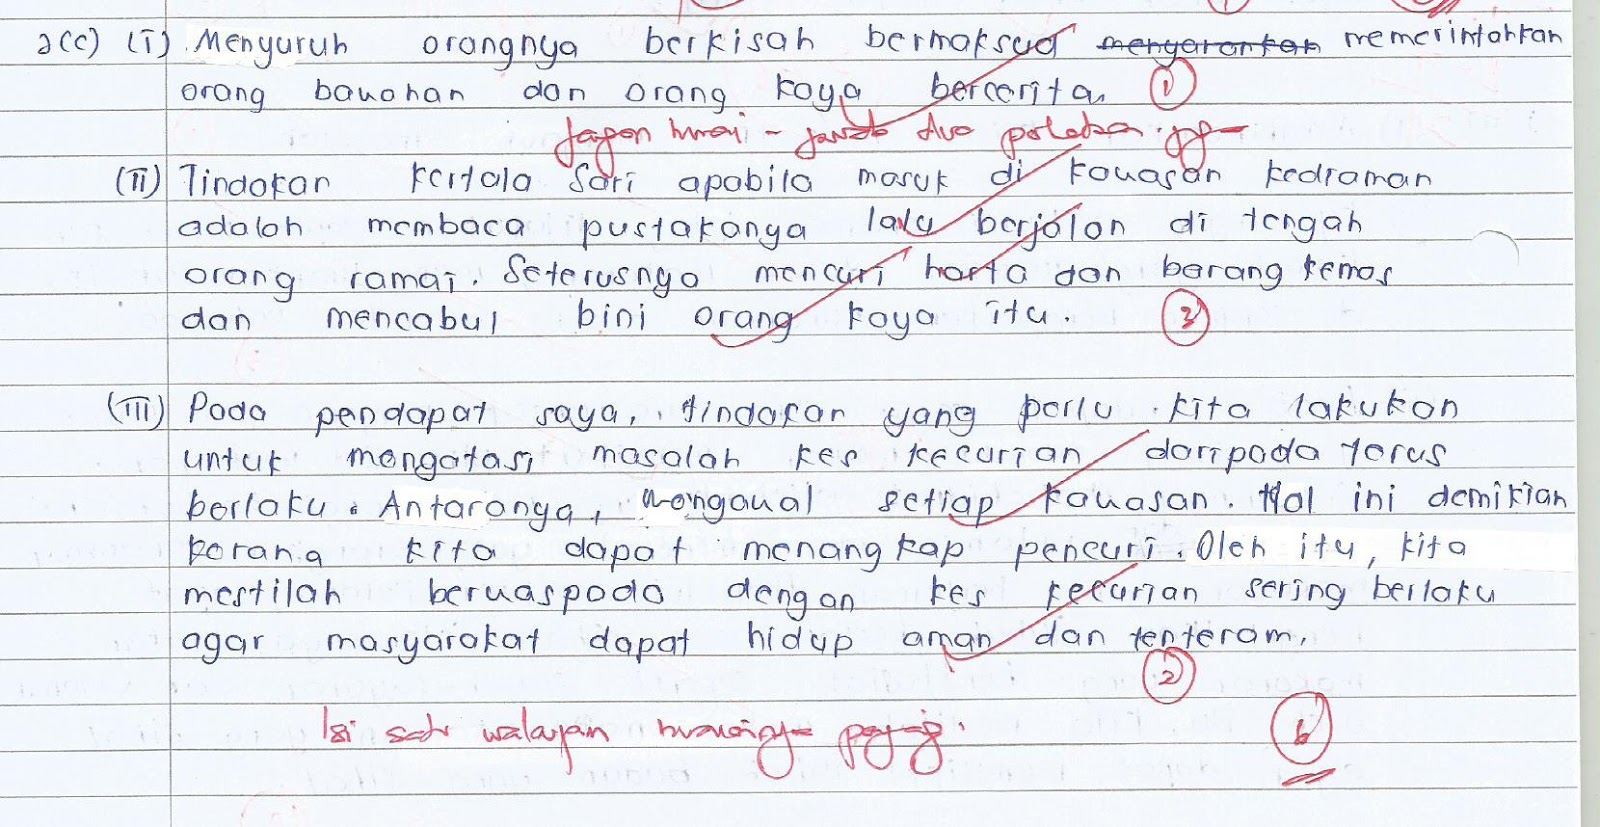 2(c) (i) Menyuruh orangnya berkisah bermaksud menyarankan memerintahkan
orang bawahan dan orang kaya bercerita. 1
Jangan hurai - jawab dua perkataan
(ii) Tindakan Kertala Sari apabila masuk di kawasan kediaman
adalah membaca pustakanya lalu berjalan di tengah
orang ramai. Seterusnya mencuri harta dan barang kemas
dan mencabul bini orang kaya itu. 3
(iii) Pada pendapat saya, tindakan yang perlu kita lakukan
untuk mengatasi masalah kes kecurian daripada terus
berlaku. Antaranya, mengawal setiap kawasan. Hal ini demikian
kerana kita dapat menangkap pencuri. Oleh itu, kita
mestilah berwaspada dengan kes kecurian sering berlaku
agar masyarakat dapat hidup aman dan tenteram.
2
Isi satu walapan hurainya
6